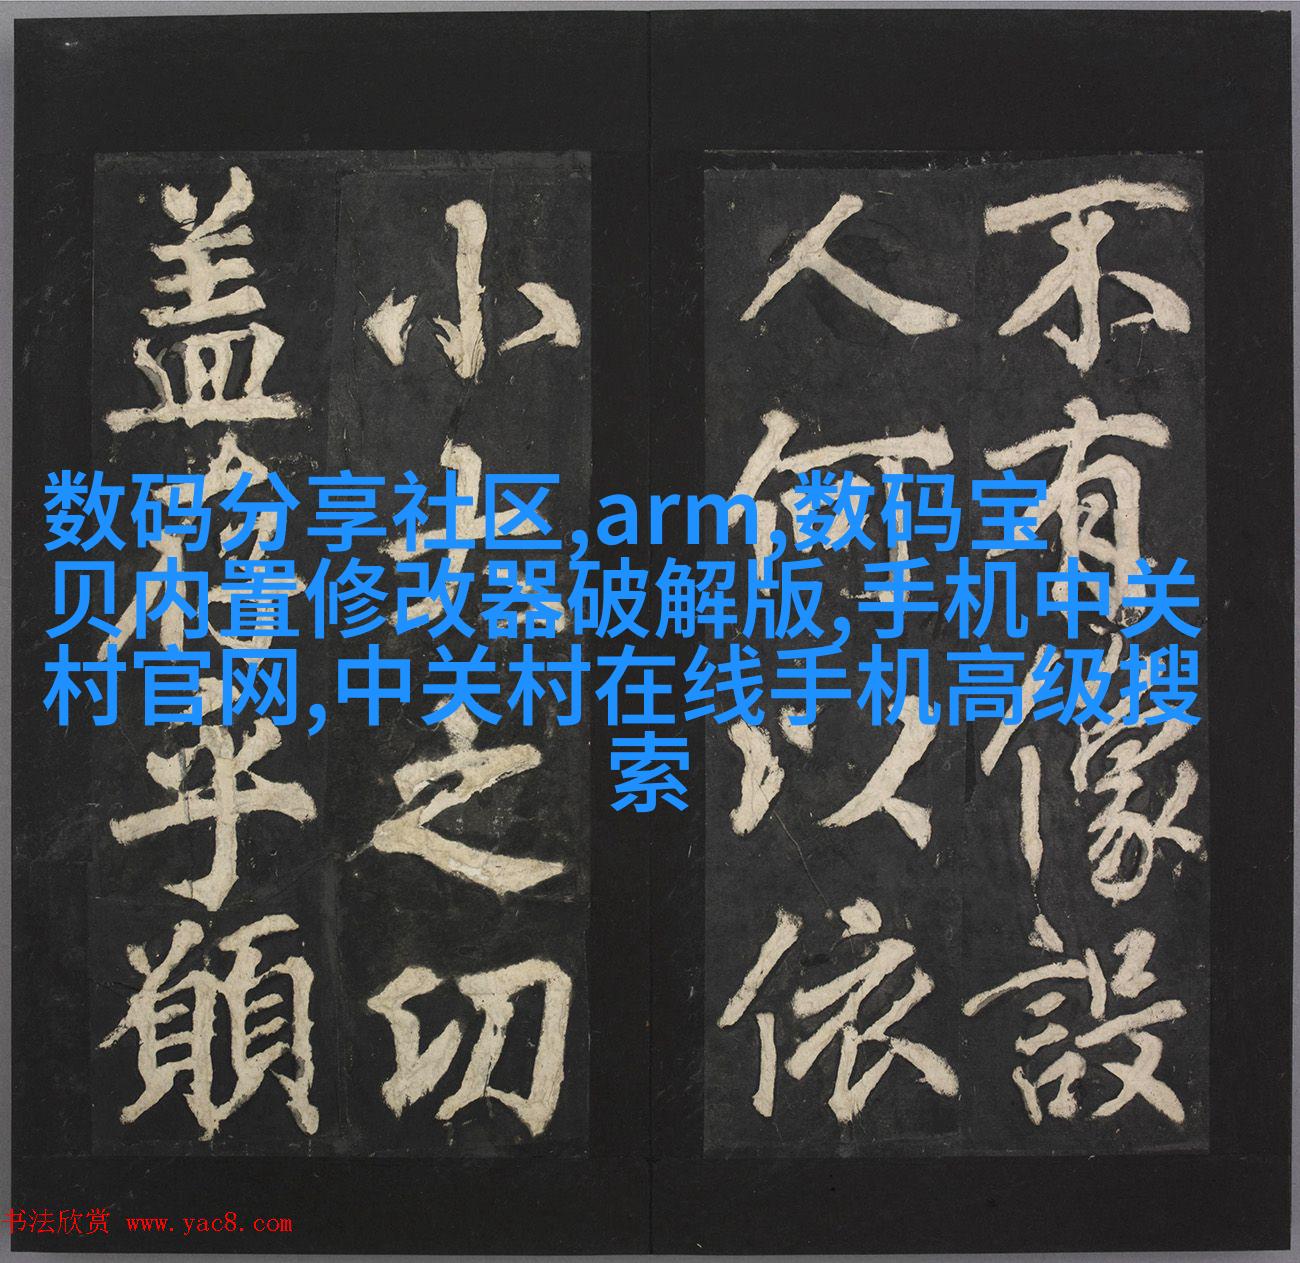 不有像設
人何以依
小大之功
盖存乎願
数码分享社区,arm,数码宝
贝内置修改器破解版,手机中关
村官网,中关村在线手机高级搜
索
书法欣赏 www.yac8.com